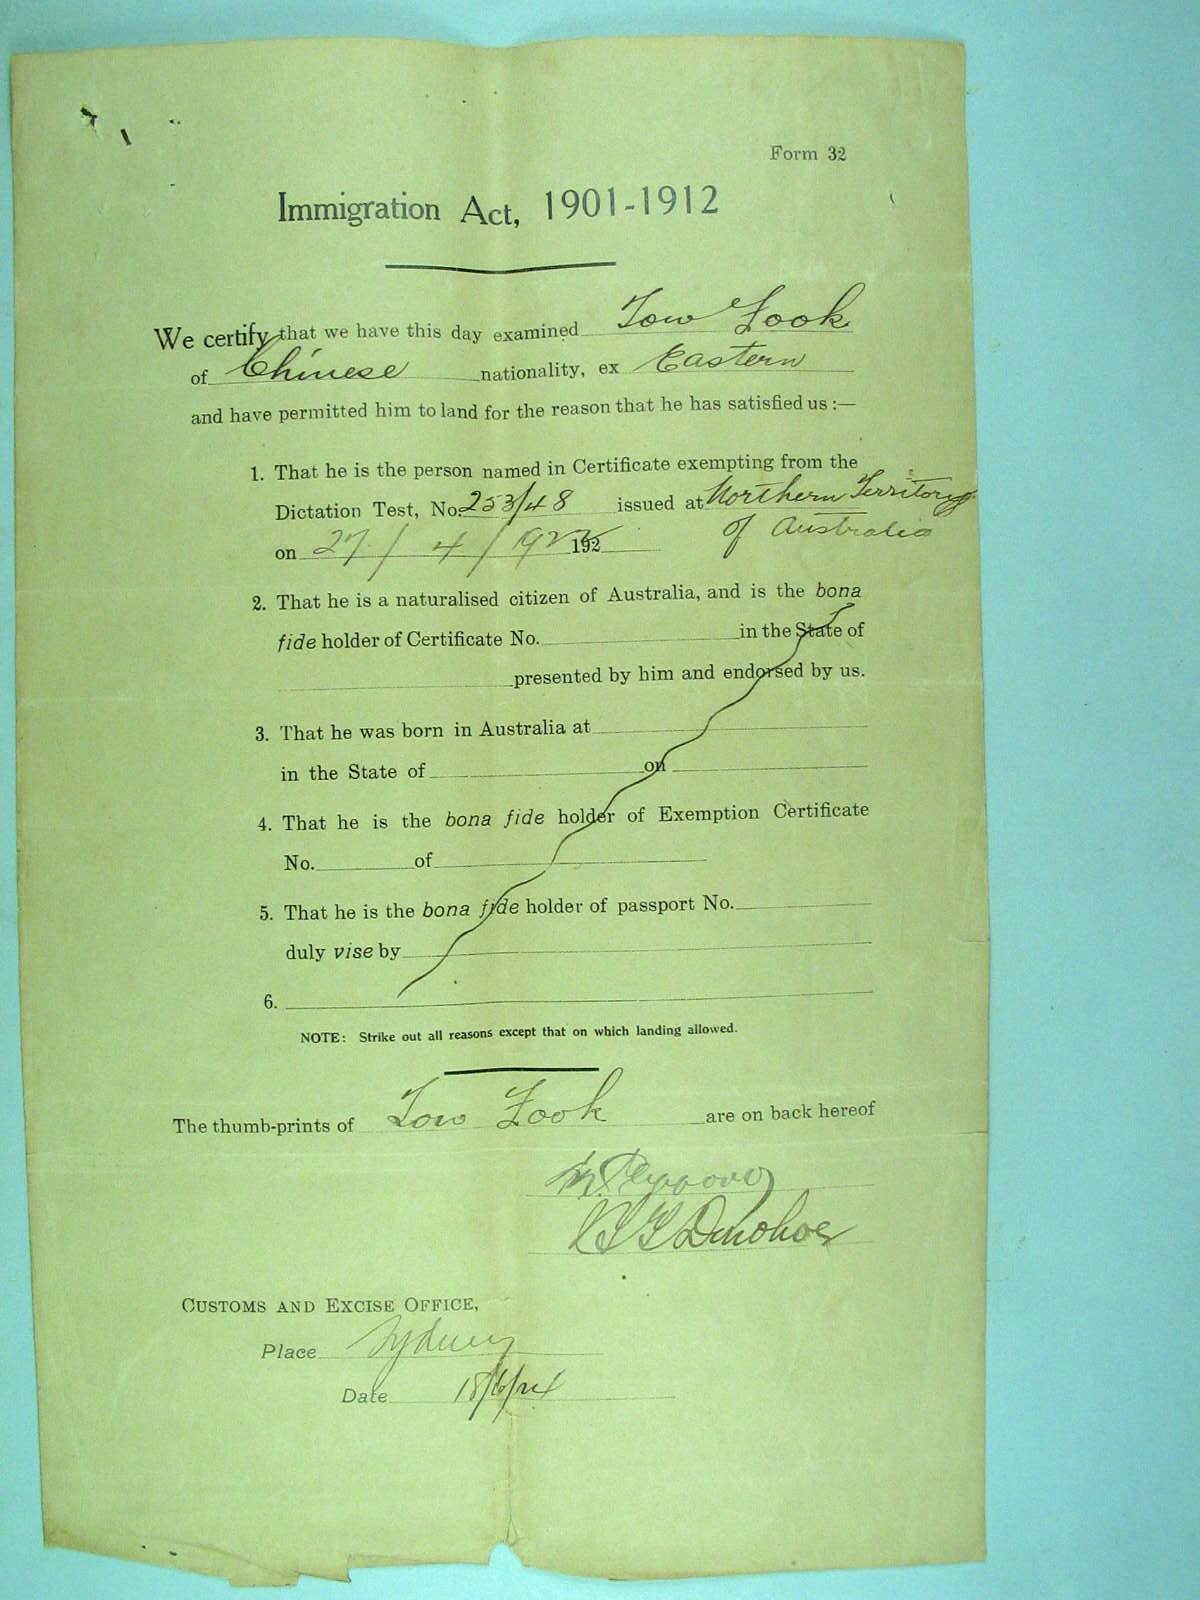 Form 32
Immigration Act, 1901-1912
We certify that we have this day examined Tow Fook
of Chinese nationality, ex Eastern
and have permitted him to land for the reason that he has satisfied us :—
1. That he is the person named in Certificate exempting from the
Dictation Test, No. 253/48 issued at Northern Territory
of Australia
on 27 / 4 / 1922 192
2. That he is a naturalised citizen of Australia, and is the bona
fide holder of Certificate No. in the State of
presented by him and endorsed by us.
3. That he was born in Australia at
in the State of on
4. That he is the bona fide holder of Exemption Certificate
No. of
5. That he is the bona fide holder of passport No.
duly vise by
6.
NOTE: Strike out all reasons except that on which landing allowed.
The thumb-prints of Tow Fook are on back hereof
Donohoe
CUSTOMS AND EXCISE OFFICE,
Place Sydney
Date 18/6/24